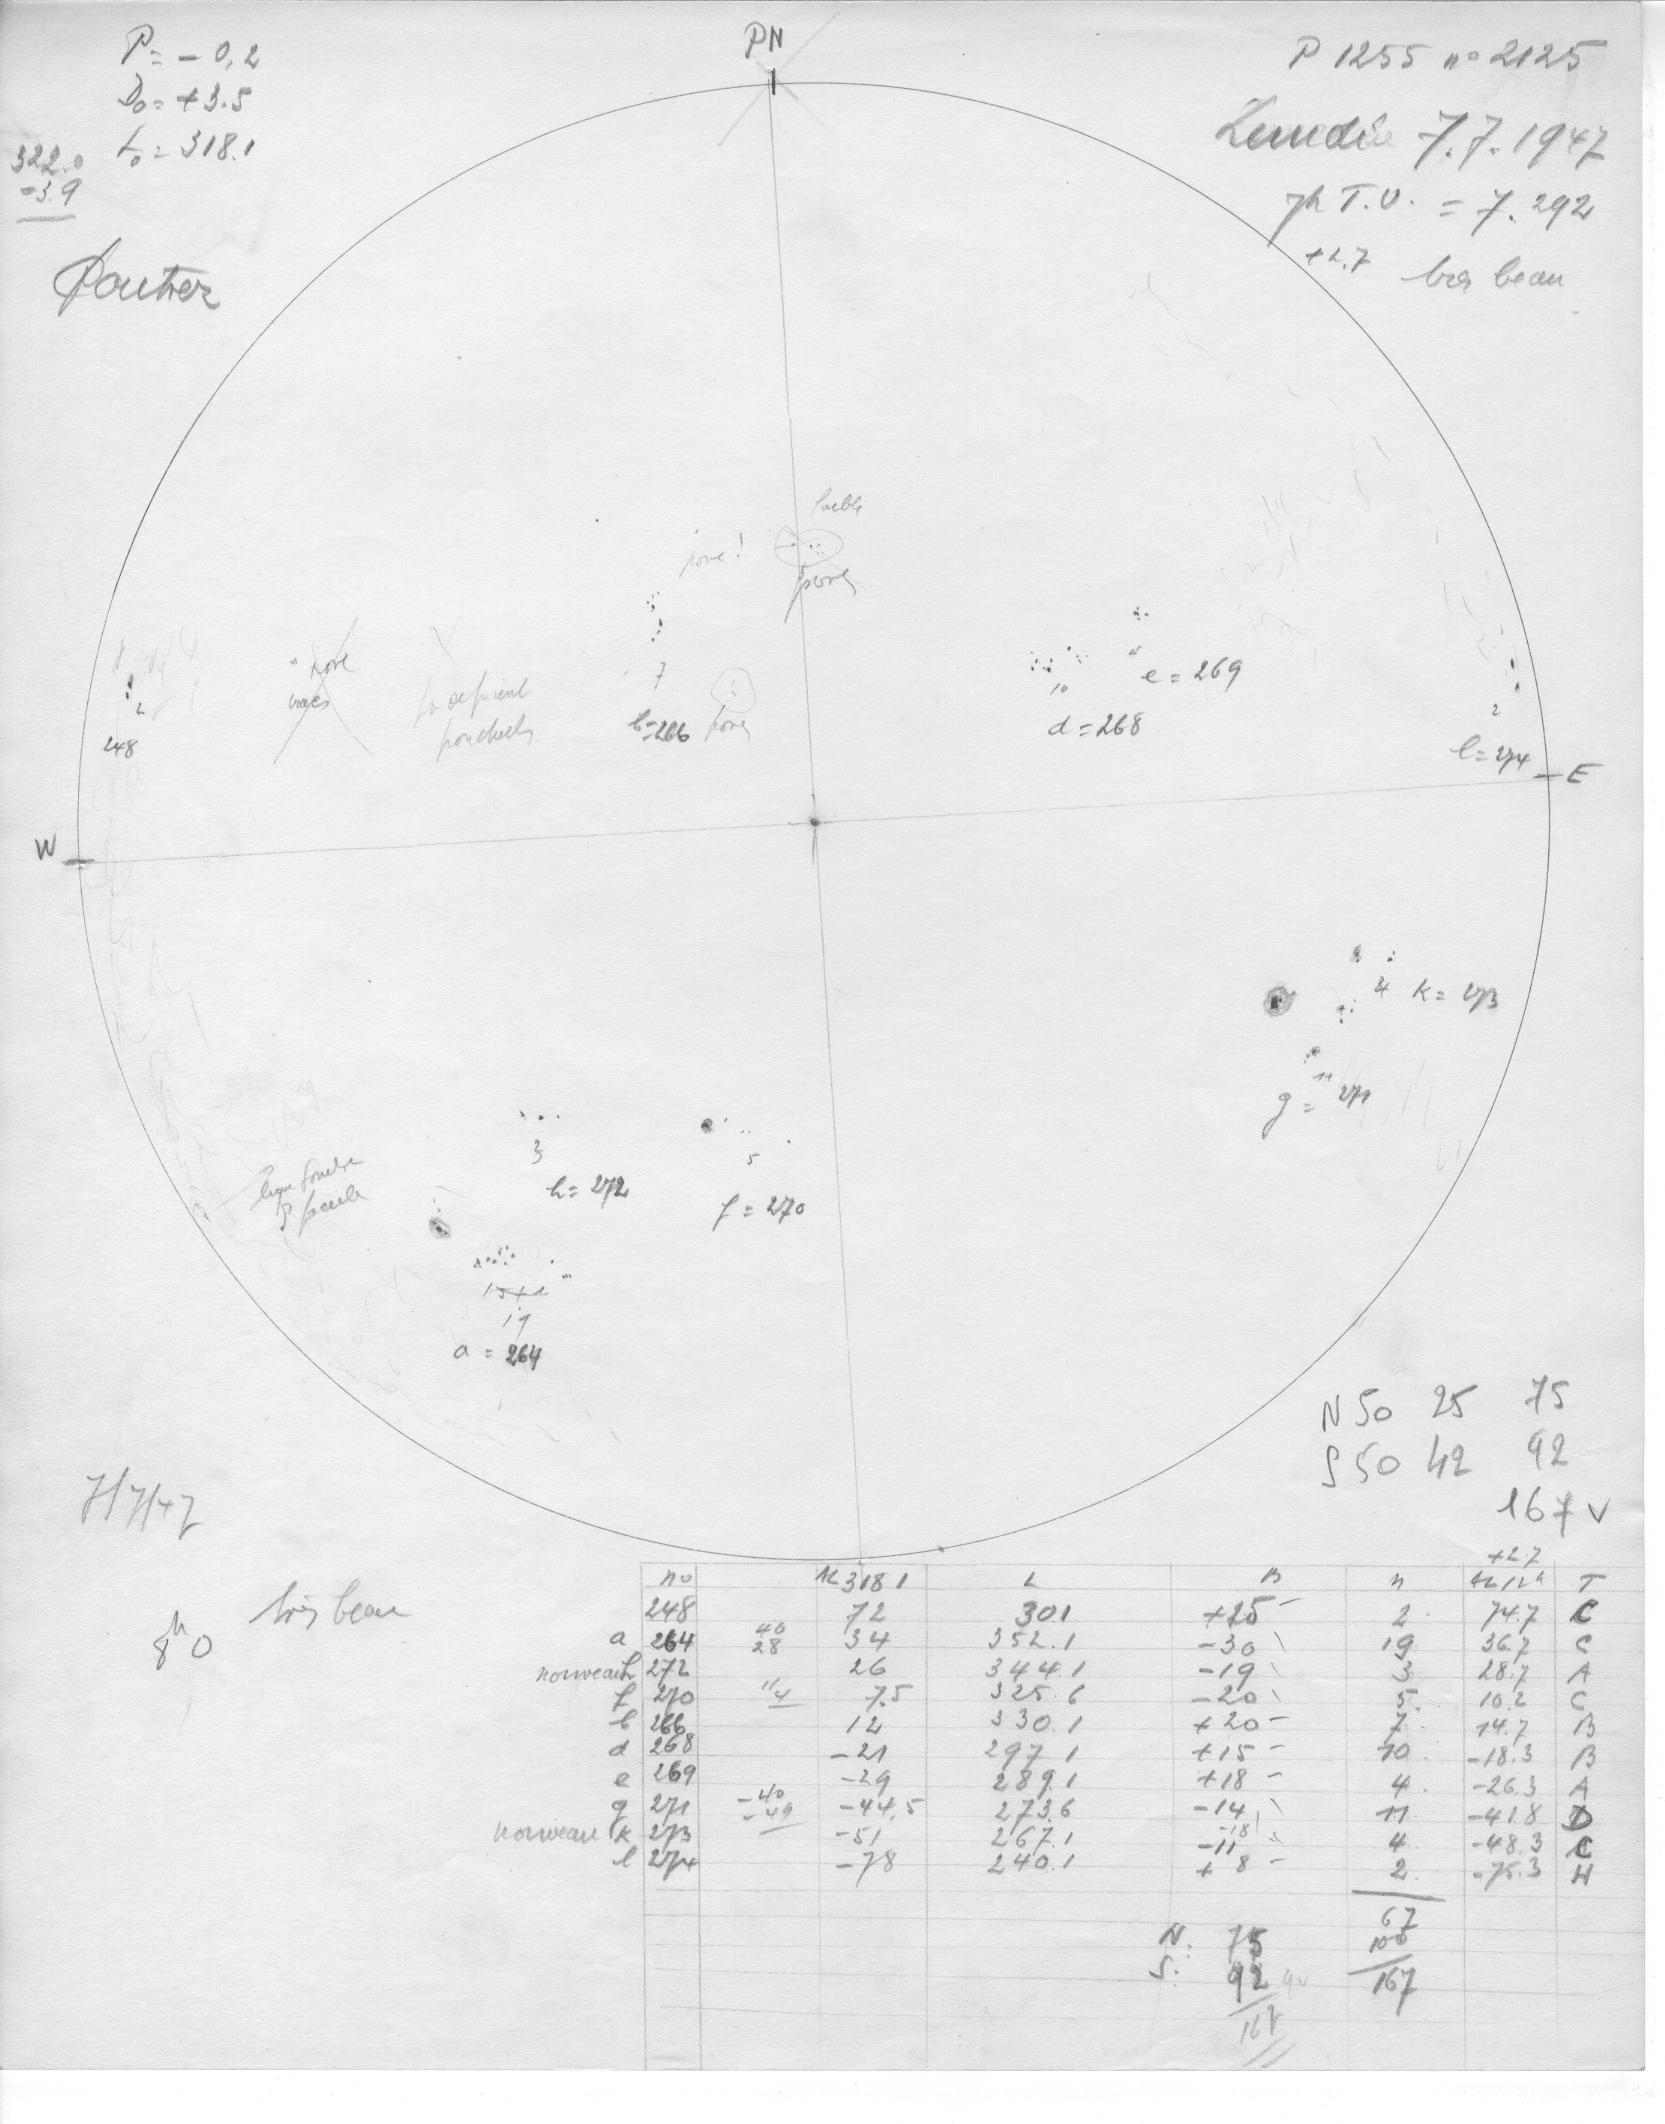 P = - 0,2
D₀ = + 3.5
L₀ = 318.1
322.0
- 3.9
PN
P 1255 nº 2125
Lundi 7.7.1947
7h T.U. = 7.292
+2.7 très beau
faible
pore!
pores
pore
2
248
7
b=266
pores
10
d=268
e=269
2
l=274
E
W
4 k= 273
11
g = 271
3
h= 272
5
f = 270
15+2
19
a = 264
N 50 25 75
S 50 42 92
167 v
7/7/47
8h0
très beau
+2.7
no 318 1 L B n T
248 72 30.1 +25 2 74.7 C
a 264 40 28 34 352.1 -30 19 36.7 C
nouveau h 272 26 344.1 -19 3 28.7 A
f 270 11 4 7.5 325.6 -20 5 10.2 C
b 266 12 330.1 +20 7 14.7 B
d 268 -21 297.1 +15 10 -18.3 B
e 269 -29 289.1 +18 4 -26.3 A
g 271 -40 -49 -44.5 273.6 -14 11 -41.8 D
nouveau k 273 -51 267.1 -18 -11 4 -48.3 C
l 274 -78 240.1 + 8 2 -75.3 H
67
100
167
N: 75
S: 92
167